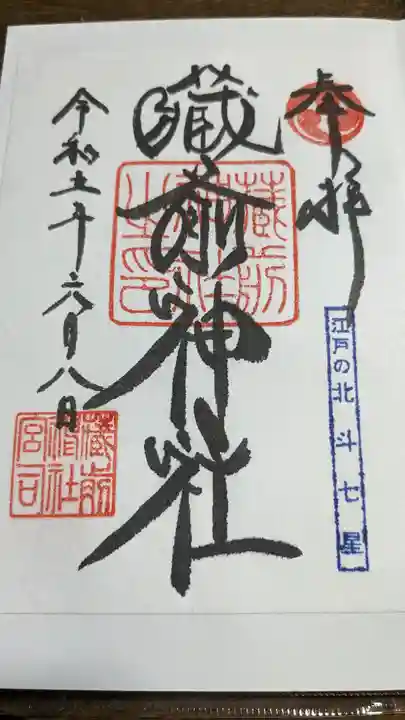 奉拝
江戸の北斗七星
藏前神社
藏前神社之印
令和五年六月八日
藏前神社宮司